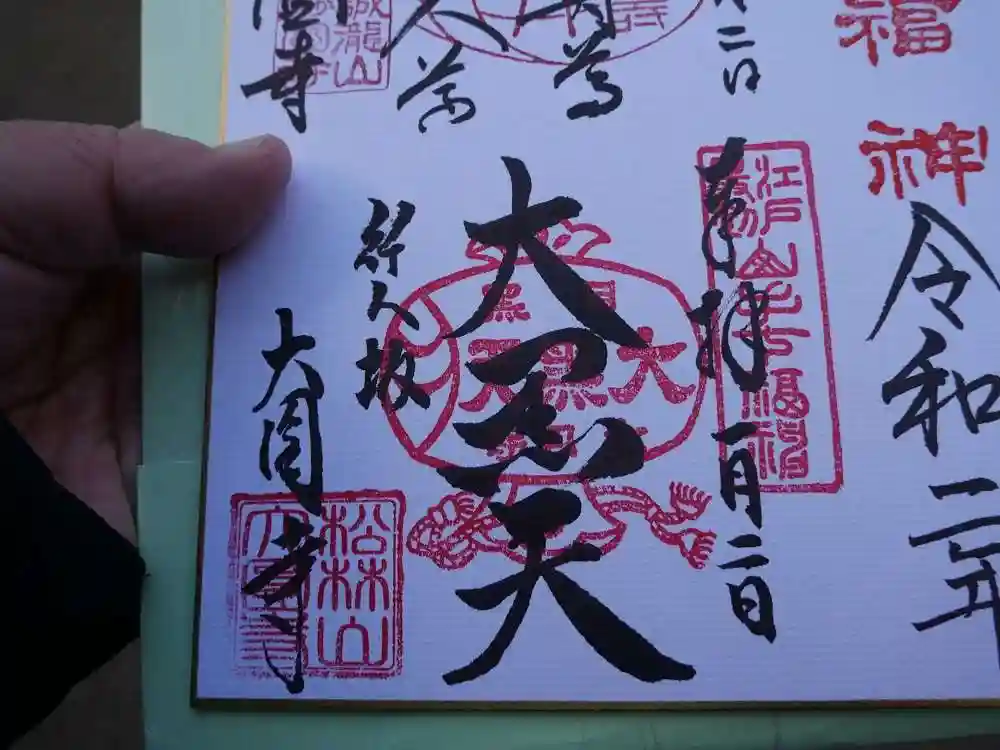 福祥
令和二年
二日
奉拝 一月二日
江戸最初山之手七福神
大黒天
大黒天
行人坂
大圓寺
松林山
大圓寺